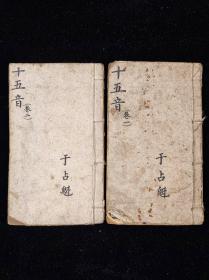 十五音
卷之
于占魁
十五音
卷一
于占魁